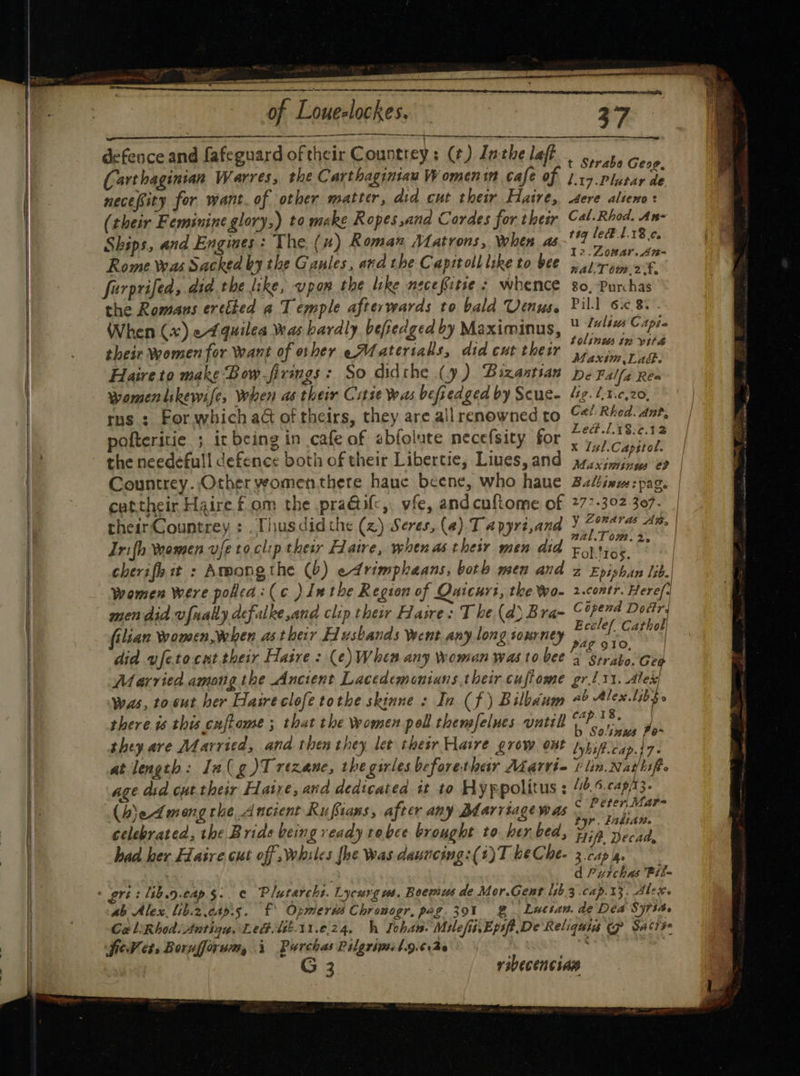 of Loue-lockes. 37
defence and safeguard of their Countrey: (t) In the last
Carthaginian Warres, the Carthaginian Women in case of
necessity for want of other matter, did cut their Haire,
(their Feminine glory,) to make Ropes, and Cordes for their
Ships, and Engines: The (u) Roman Matrons, when as
Rome was Sacked by the Gaules, and the Capitoll like to bee
surprised, did the like, vpon the like necessitie: whence
the Romans erected a Temple afterwards to bald Venus.
When (x) Aquilea was hardly besiedged by Maximinus,
their women for want of other Materialls, did cut their
Haire to make Bow-strings: So did the (y) Bizantian
women likewise, when as their Citie was besiedged by Seue-
rus: For which act of theirs, they are all renowned to
posteritie; it being in case of absolute necessity for
the needefull defence both of their Libertie, Liues, and
Countrey. Other women there haue beene, who haue
cut their Haire from the practise, vse, and custome of
their Countrey: Thus did the (z) Seres, (a) Tapyri, and
Irish women vse to clip their Haire, when as their men did
cherish it: Among the (b) Arimphaans, both men and
women were polled: (c) In the Region of Quicuri, the Wo-
men did vsually defalke, and clip their Haire: The (d) Bra-
silian women, when as their Husbands went any long iourney
did vse to cut their Haire: (e) When any woman was to bee
Married among the Ancient Lacedemonians, their custome
was, to cut her Haire close to the skinne: In (f) Bilbaum
there is this custome; that the women poll themselues vntill
they are Married, and then they let their Haire grow out
at length: In (g) Trezane, the girles before their Marri-
age did cut their Haire, and dedicated it to Hyppolitus:
(h) Among the Ancient Russians, after any Marriage was
celebrated, the Bride being ready to bee brought to her bed,
had her Haire cut off, whiles she was dauncing: (i) The Che-
t Strabo Geog.
l.17. Plutar de
Aere alieno:
Cal. Rhod. An-
tiq lect l.18.c.
12. Zonar. An-
nal. Tom, 2. f.
80. Purchas
Pill 6.c 8.
u Iulius Capi-
tolinus in vita
Maxim, Lact.
De Falsa Rea
lig. l.1.c.20,
Cal Rhod. ant,
Lect. l.18.c.12
x Iul. Capitol.
Maximinus et
Balbinus: pag.
277. 302 307.
y Zonaras An,
nal. Tom. 2.
Fol. 105.
z Epiphan lib.
2. contr. Heres.
Copend Doctr,
Ecclef. Cathol
pag 910,
a Strabo. Geog
gr. l 11. Alex
ab Alex. lib 5.
cap 18.
b Solinus Po-
lyhist. cap. 17.
Plin. Nat hist.
lib. 6. cap 13.
c Peter Mar-
tyr. Indian.
Hist. Decad,
3. cap 4.
d Purchas Pil-
gri: lib.9.cap 5. e Plutarchi. Lycurgus. Boemus de Mor. Gent lib 3 cap. 13. Alex.
ab Alex, lib.2.cap.5. f Opmerus Chronogr. pag 391 g Lucian. de Dea Syria.
Cal. Rhod. Antiqu. Lect. lib.11.c.24. h Iohan. Milesii, Epist, De Religuiis & Sacris-
fic. Vet. Borussorum, i Purchas Pilgrim: l.9.c.2.
G 3 ribecencian